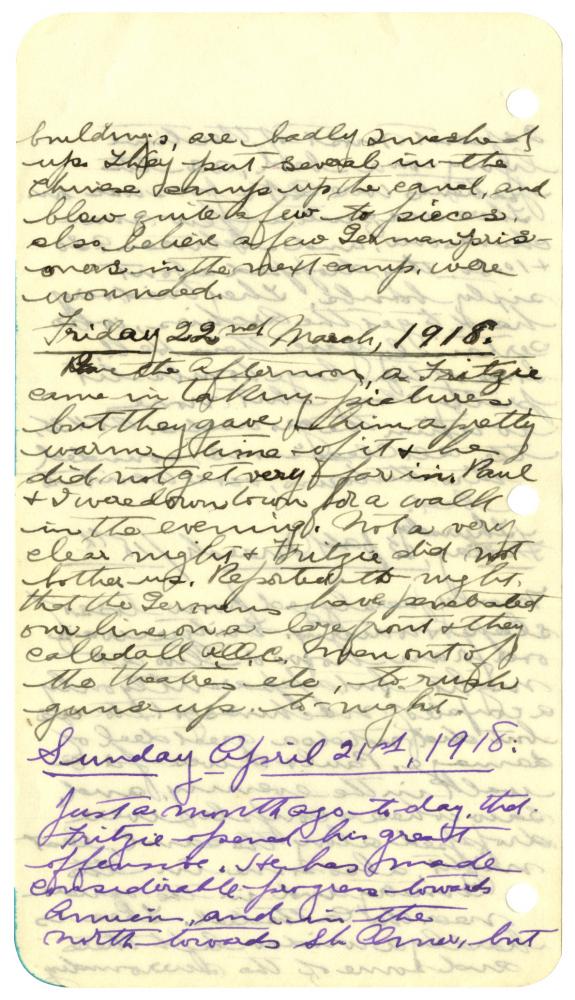 buildings, are badly smashed
up. They put several in the
Chinese camp up the canal, and
blew quite a few to pieces.
also believe a few German pris
oners in the next camp, were
wounded.
Friday 22nd March, 1918.
the afternoon, a Fritzie
came in taking pictures
but they gave him a pretty
warm time of it & he
did not get very far in. Paul
& I were down town for a walk
in the evening. Not a very
clear night & Fritzie did not
bother us. Reported to night,
that the Germans have penetrated
our line on a large front & they
called all A.S.C. men out of
the theatres, etc, to rush
guns up to-night.
Sunday April 21st, 1918:
Just a month ago to-day, that
Fritzie opened his great
offensive. He has made
considerable progress towards
Amien, and in the
north towards St. Omer, but